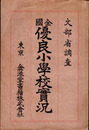 文部省調查
全國優良小學校實況
東京 金港堂書籍株式會社